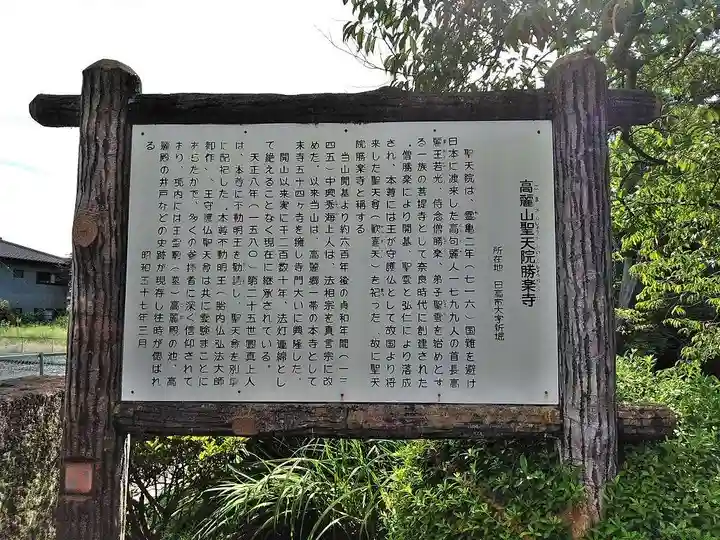 高麗山聖天院勝楽寺
所在地 日高市大字新堀
聖天院は、霊亀二年(七一六)国難を避け
日本に渡来した高句麗人一七九九人の首長高
麗王若光、侍念僧勝楽、弟子聖雲を始めとす
る一族の菩提寺として奈良時代に創建された
。僧勝楽により開基、聖雲と弘仁により落成
され、本尊には王が守護仏として故国より将
来した聖天尊(歓喜天)を祀った。故に聖天
院勝楽寺と称する
当山開基より約六百年後の貞和年間(一三
四五)中興秀海上人は、法相宗を真言宗に改
めた。以来当山は、高麗郷一帯の本寺として
末寺五十四ヶ寺を擁し寺門大いに興隆した。
開山以来実に千二百数十年、法灯連綿とし
て絶えることなく現在に継承されている。
天正八年(一五八〇)第二十五世圓真上人
は、本尊に不動明王を勧請し、聖天尊を別壇
に配祀した。本尊不動明王(胎内仏弘法大師
御作)、王守護仏聖天尊は共に霊験まことに
あらたかで、多くの参拝者に深く信仰されて
おり、境内には王霊廟(墓)高麗殿の池、高
麗殿の井戸などの史跡が現存し往時が偲ばれ
る
昭和五十七年三月